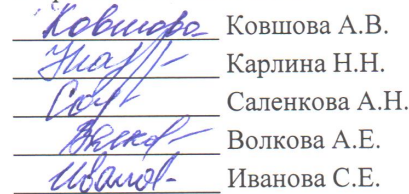 Ковшова Ковшова А.В.
Карлина Н.Н.
Саленкова А.Н.
Волков Волкова А.Е.
Иванов Иванова С.Е.